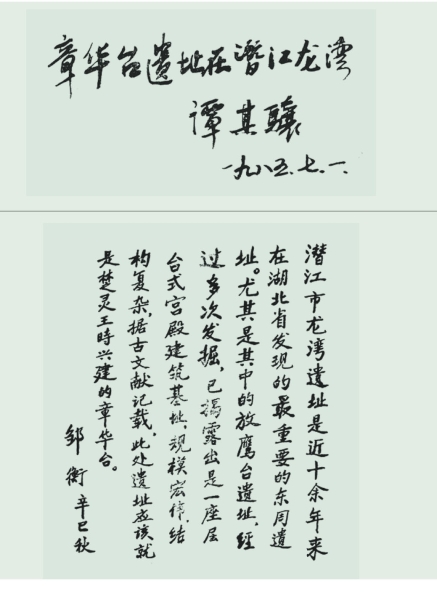 章华台遗址在潜江龙湾
谭其驤
一九八五.七.一.
潜江市龙湾遗址是近十余年来
在湖北省发现的最重要的东周遗
址。尤其是其中的放鹰台遗址,经
过多次发掘,已揭露出是一座层
台式宫殿建筑基址,规模宏伟,结
构复杂,据古文献记载,此处遗址应该就
是楚灵王時兴建的章华台。
邹衡 辛巳秋